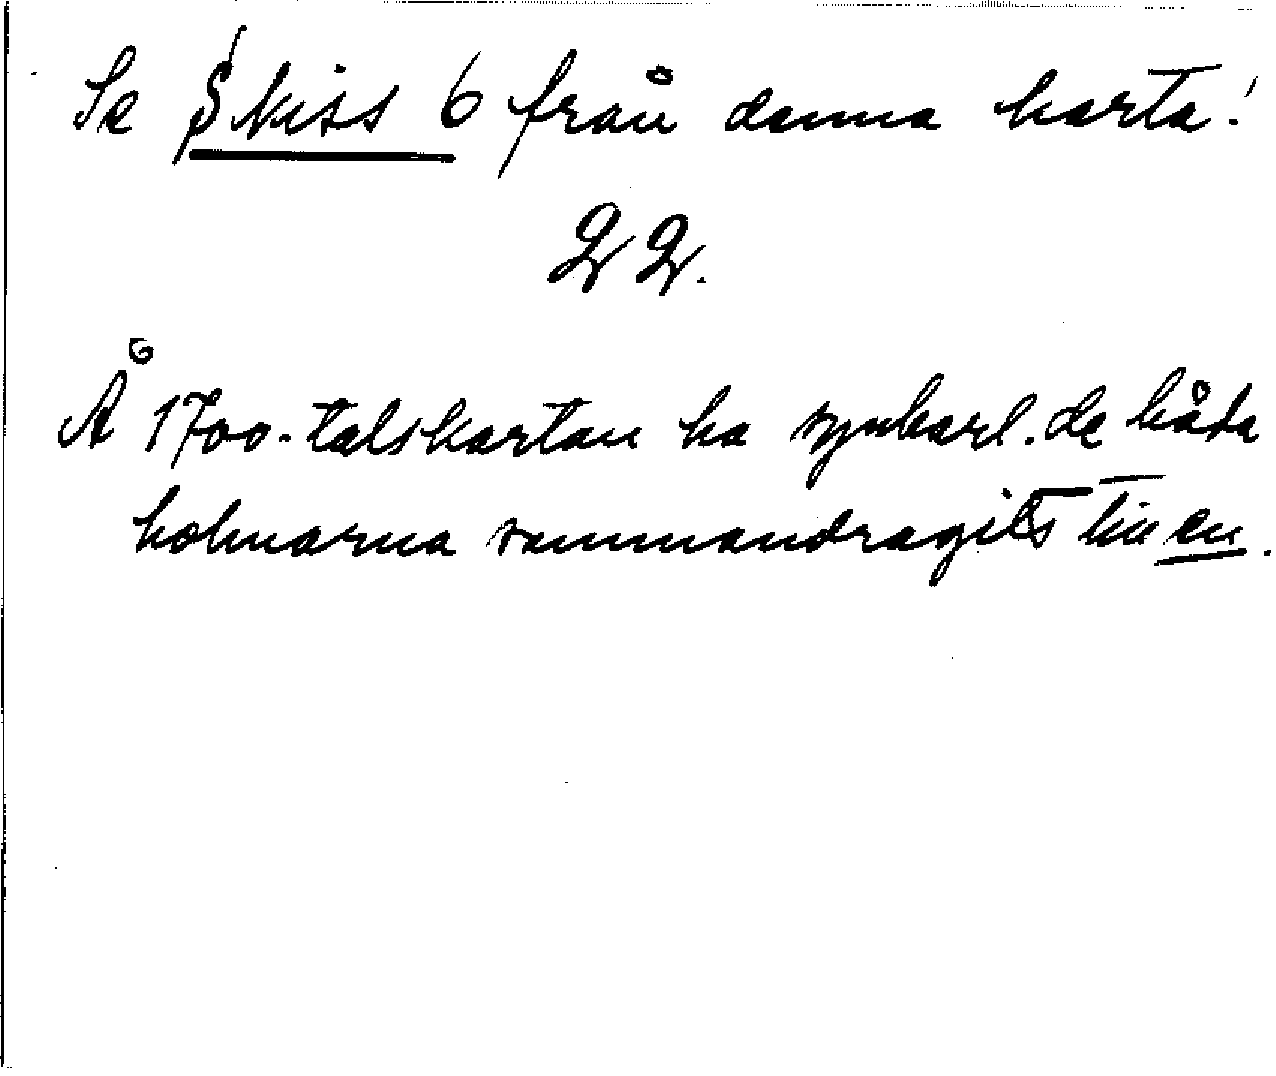 Se Skiss 6 från denna karta!
22.
Å 1700-talskartan ha synbarl. de båda
holmarna sammandragits till en.